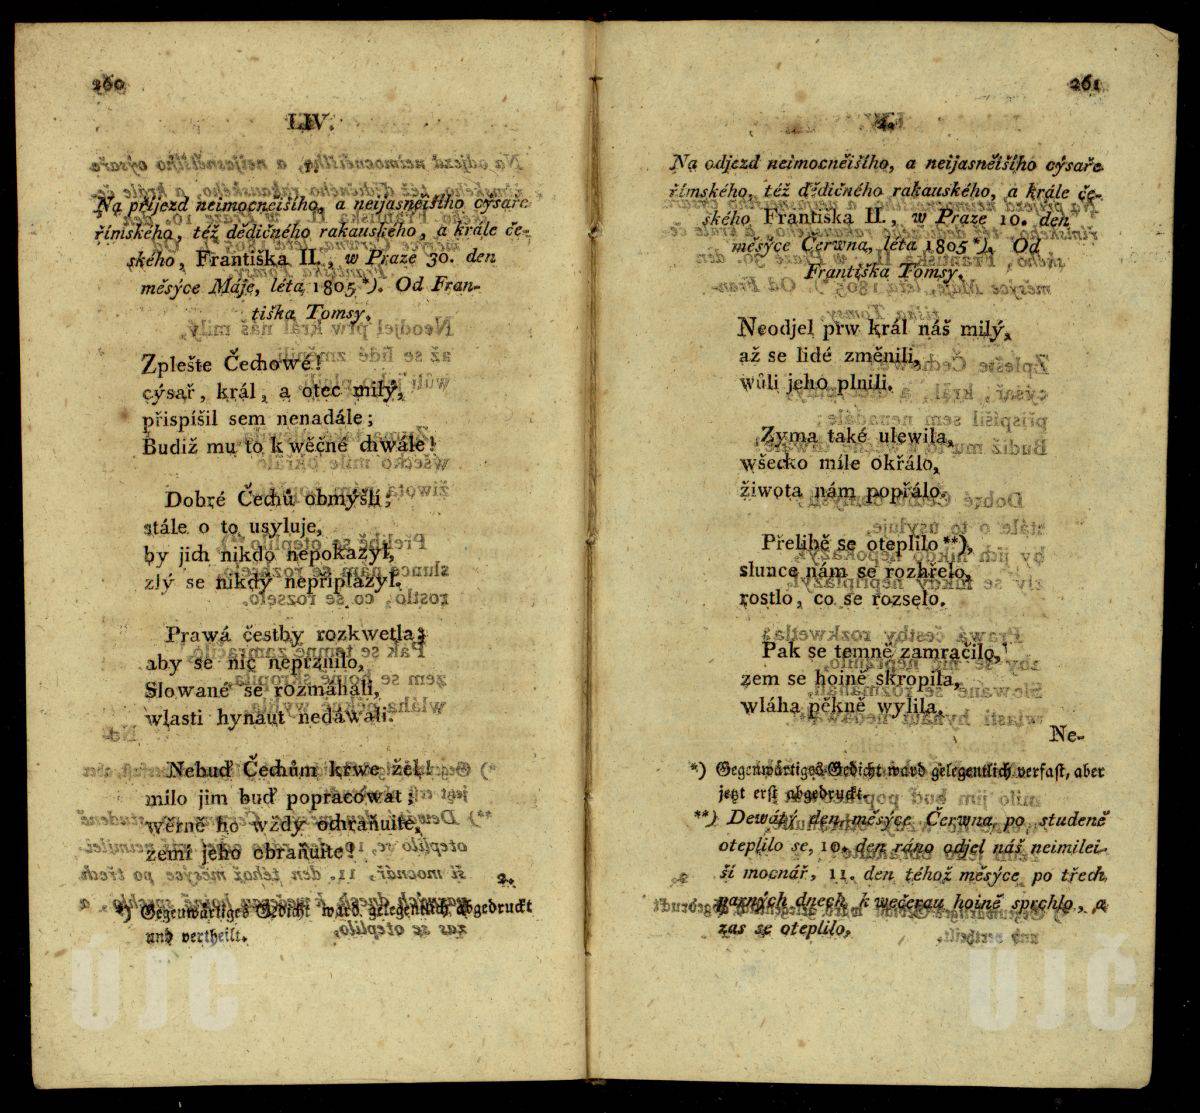 260
LIV.
1.
Na příjezd neimocněišího, a neijasněišího cýsaře
římského, též dědičného rakauského, a krále če-
ského, Františka II., w Praze 30. den
měsýce Máje, léta 1805 *). Od Fran-
tiška Tomsy.
Zplešte Čechowé!
cýsař, král, a otec milý,
přispíšil sem nenadále;
Budiž mu to k wěčné chwále!
Dobré Čechů obmýšlí;
stále o to usyluje,
by jich nikdo nepokazyl,
zlý se nikdý nepřiplazyl.
Prawá čestby rozkwetla;
aby se nic neprznilo,
Slowané se rozmáhali,
wlasti hynaut nedáwali.
Nebuď Čechům krwe žel!
milo jim buď popracowat;
wěrně ho wždy ochraňuite,
zemi jeho obraňuite!
2.
*) Gegenwärtiges Gedicht ward gelegentlich abgedruckt
und vertheilt.
261
2.
Na odjezd neimocněišího, a neijasněišího cýsaře
římského, též dědičného rakauského, a krále če-
ského Františka II., w Praze 10. den
měsýce Čerwna, léta 1805 *). Od
Františka Tomsy.
Neodjel prw král náš milý,
až se lidé změnili,
wůli jeho plnili.
Zyma také ulewila,
wšecko mile okřálo,
žiwota nám popřálo.
Přelibě se oteplilo **),
slunce nám se rozhřelo,
rostlo, co se rozselo.
Pak se temně zamračilo,
zem se hoině skropila,
wláha pěkně wylila.
Ne-
*) Gegenwärtiges Gedicht ward gelegentlich verfaßt, aber
jetzt erst abgedruckt.
**) Dewátý den měsýce Čerwna po studeně
oteplilo se, 10. den ráno odjel náš neimilei-
ší mocnář, 11. den téhož měsýce po třech
parných dnech k wečerau hoině sprchlo, a
zas se oteplilo,
ÚJČ
ÚJČ